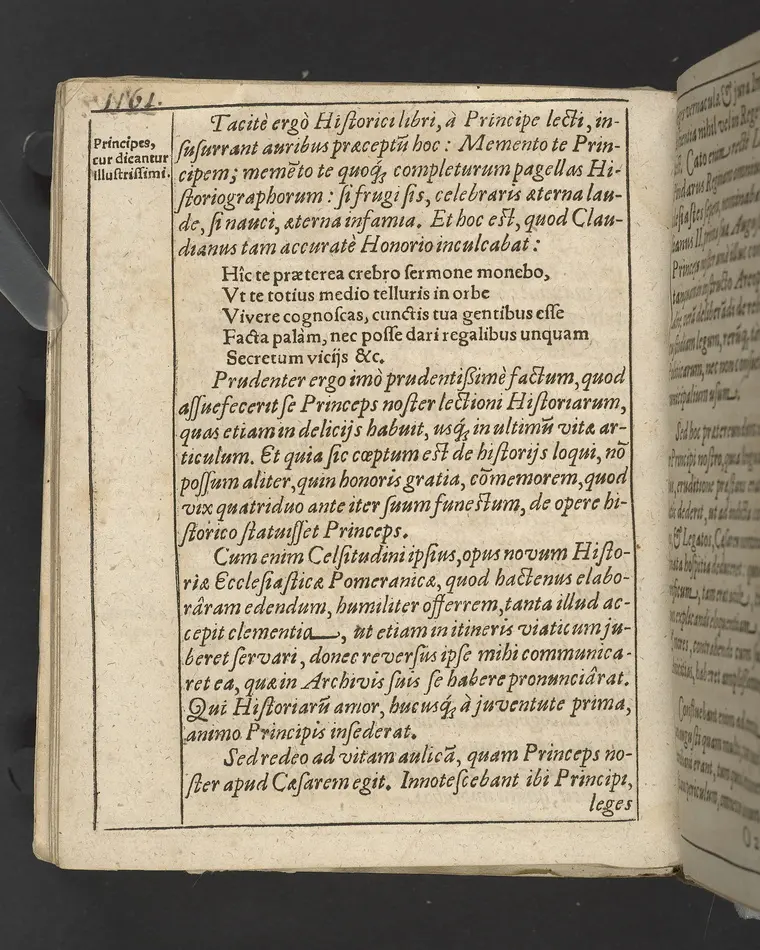 1161.
Principes,
cur dicantur
illustrissimi.
Tacitè ergò Historici libri, à Principe lecti, in-
susurrant auribus præceptũ hoc : Memento te Prin-
cipem; memẽto te quoq́; completurum pagellas Hi-
storiographorum : si frugi sis, celebraris æterna lau-
de, si nauci, æterna infamia. Et hoc est, quod Clau-
dianus tam accuratè Honorio inculcabat :
Hîc te præterea crebro sermone monebo,
Vt te totius medio telluris in orbe
Vivere cognoscas, cunctis tua gentibus esse
Facta palàm, nec posse dari regalibus unquam
Secretum vicijs &c.
Prudenter ergo imò prudentissimè factum, quod
assuefecerit se Princeps noster lectioni Historiarum,
quas etiam in delicijs habuit, usq́; in ultimũ vitæ ar-
ticulum. Et quia sic cœptum est de historijs loqui, nõ
possum aliter, quin honoris gratia, cõmemorem, quod
vix quatriduo ante iter suum funestum, de opere hi-
storico statuisset Princeps.
Cum enim Celsitudini ipsius, opus novum Histo-
riæ Ecclesiasticæ Pomeranicæ, quod hactenus elabo-
râram edendum, humiliter offerrem, tanta illud ac-
cepit clementia, ut etiam in itineris viaticum ju-
beret servari, donec reversus ipse mihi communica-
ret ea, quæ in Archivis suis se habere pronunciârat.
Qui Historiarũ amor, hucusq́; à juventute prima,
animo Principis insederat.
Sed redeo ad vitam aulicã, quam Princeps no-
ster apud Cæsarem egit. Innotescebant ibi Principi,
leges